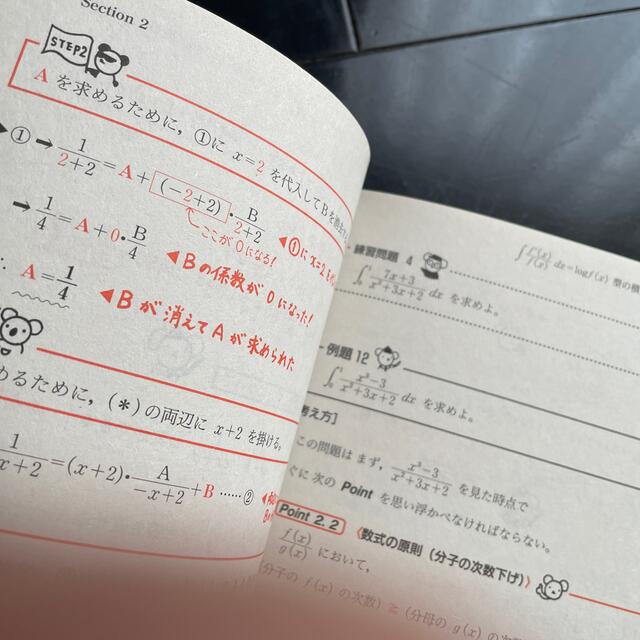 Section 2
STEP2
A を求めるために, ①に x=2 を代入してBを
① → 1/2+2 = A + (−2+2)・B/2+2
ここが0になる!
◀①に x=2
→ 1/4 = A + 0・B/4
◀Bの係数が0になった!
∴ A = 1/4
◀Bが消えてAが求められた
めるために, (*) の両辺に x+2 を掛ける。
1/x+2 = (x+2)・A/−x+2 + B ……②
練習問題 4
7x+3/x²+3x+2 dx を求めよ。
dx = log f(x) 型の積
例題 12
x³−3/x²+3x+2 dx を求めよ。
考え方]
この問題は まず, x³−3/x²+3x+2 を見た時点で
ぐに 次の Point を思い浮かべなければならない。
Point 2.2 《数式の原則(分子の次数下げ)》
f(x)/g(x) において,
(分子の f(x) の次数) ≧ (分母の g(x) の次数